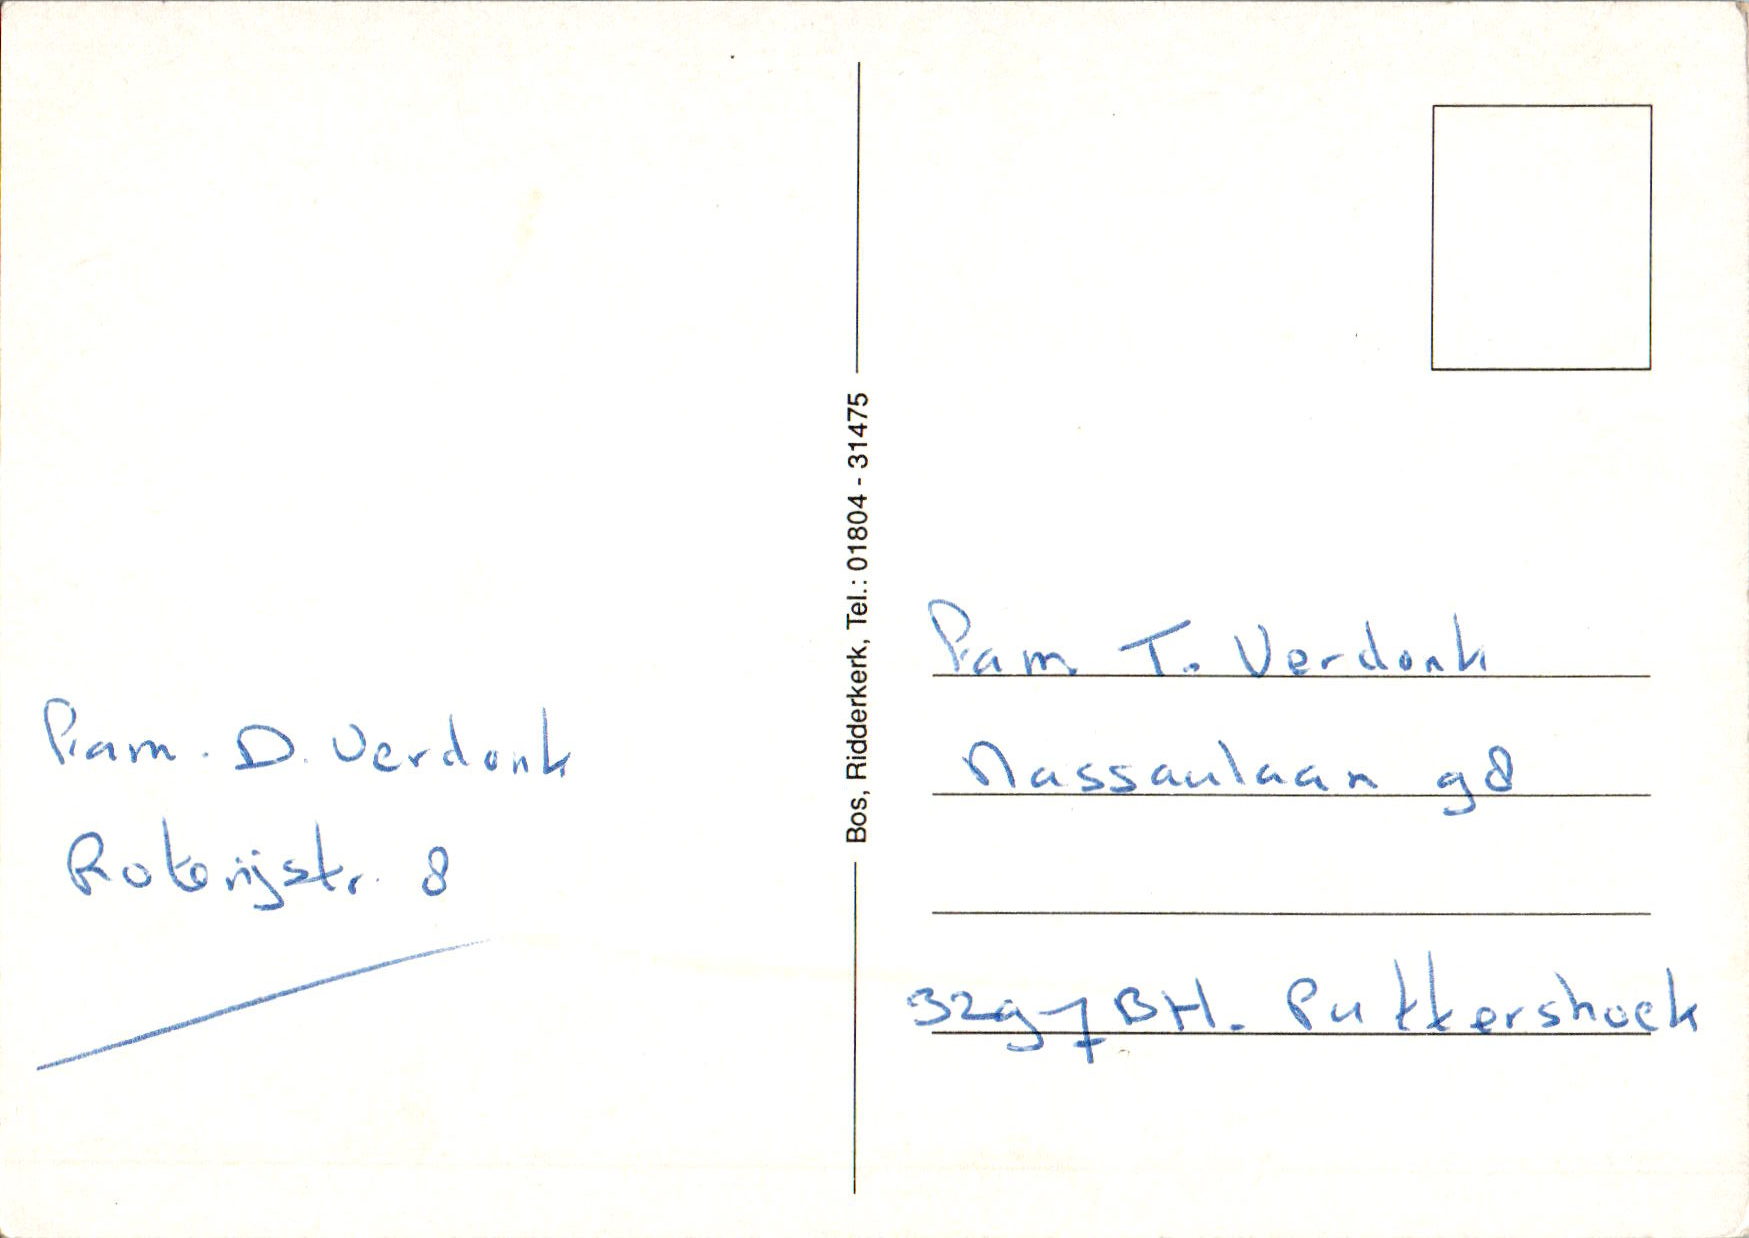 Fam. D. Verdonk
Roterijstr. 8
Bos, Ridderkerk, Tel.: 01804 - 31475
Fam T. Verdonk
Nassaulaan 98
3297 BH. Puttershoek